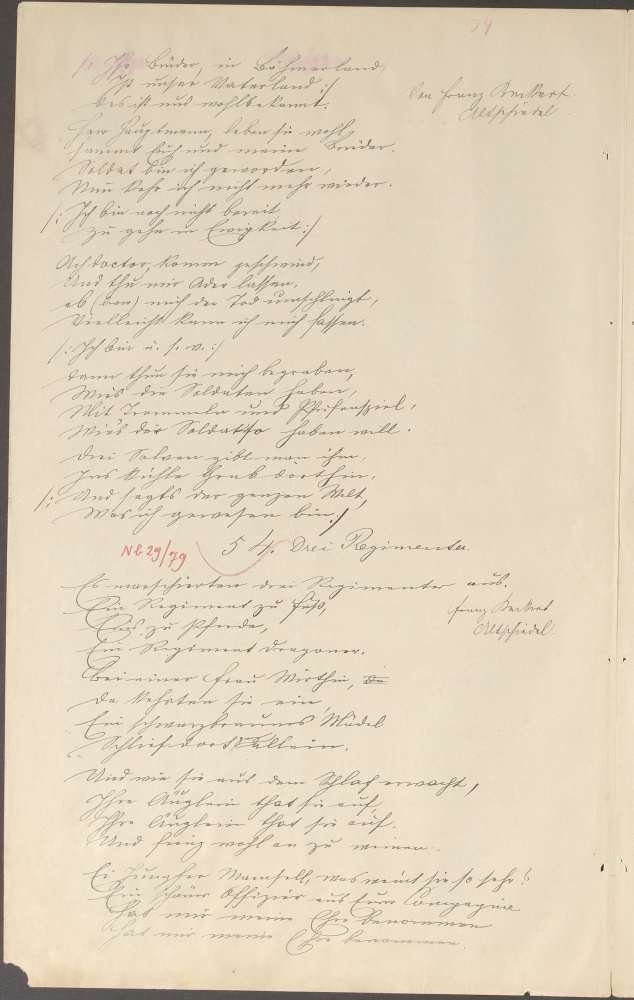 /: Ihr Brüder, in Böhmerland,
Ist unser Vaterland :/
Das ist uns wohlbekannt.
Von Franz
Altschiedel
Herr Hauptmann, leben sie wohl,
sammt Euch und meine Brüder.
Soldat bin ich geworden,
Nun kehr ich nicht mehr wieder.
/: Ich bin noch nicht bereit
zu gehn in Ewigkeit :/
Ach Doctor, komm geschwind,
Und thu mir Ader lassen,
ob (wenn) mich der Tod umschlingt,
Vielleicht kann ich mich fassen.
/: Ich bin u. s. w. :/
Dann thun sie mich begraben,
Wies die Soldaten haben,
Mit Trommeln und Pfeifenspiel,
Wie's der Soldat so haben will.
Drei Salven gibt man ihm,
Ins kühle Grab dorthin,
/: Und sagts der ganzen Welt,
Was ich gewesen bin :/
Nb 29/79
54. Drei Regimenter.
Es marschierten drei Regimenter aus.
Ein Regiment zu Fuß,
Eins zu Pferde,
Ein Regiment Dragoner.
Franz
Altschiedel
Bei einer Frau Wirthin,
Da kehrten sie ein,
Ein schwarzbraunes Mädel
Schlief dort allein.
Und wie sie aus dem Schlaf erwacht,
Ihre Äuglein that sie auf,
Ihre Äuglein that sie auf.
Und fieng wohl an zu weinen.
Ei Jungfer Mamsell, was weint sie so sehr?
Ein schöner Offizier aus Eurer Compagnie
Hat mir meine Ehre benommen
Hat mir meine Ehre benommen.